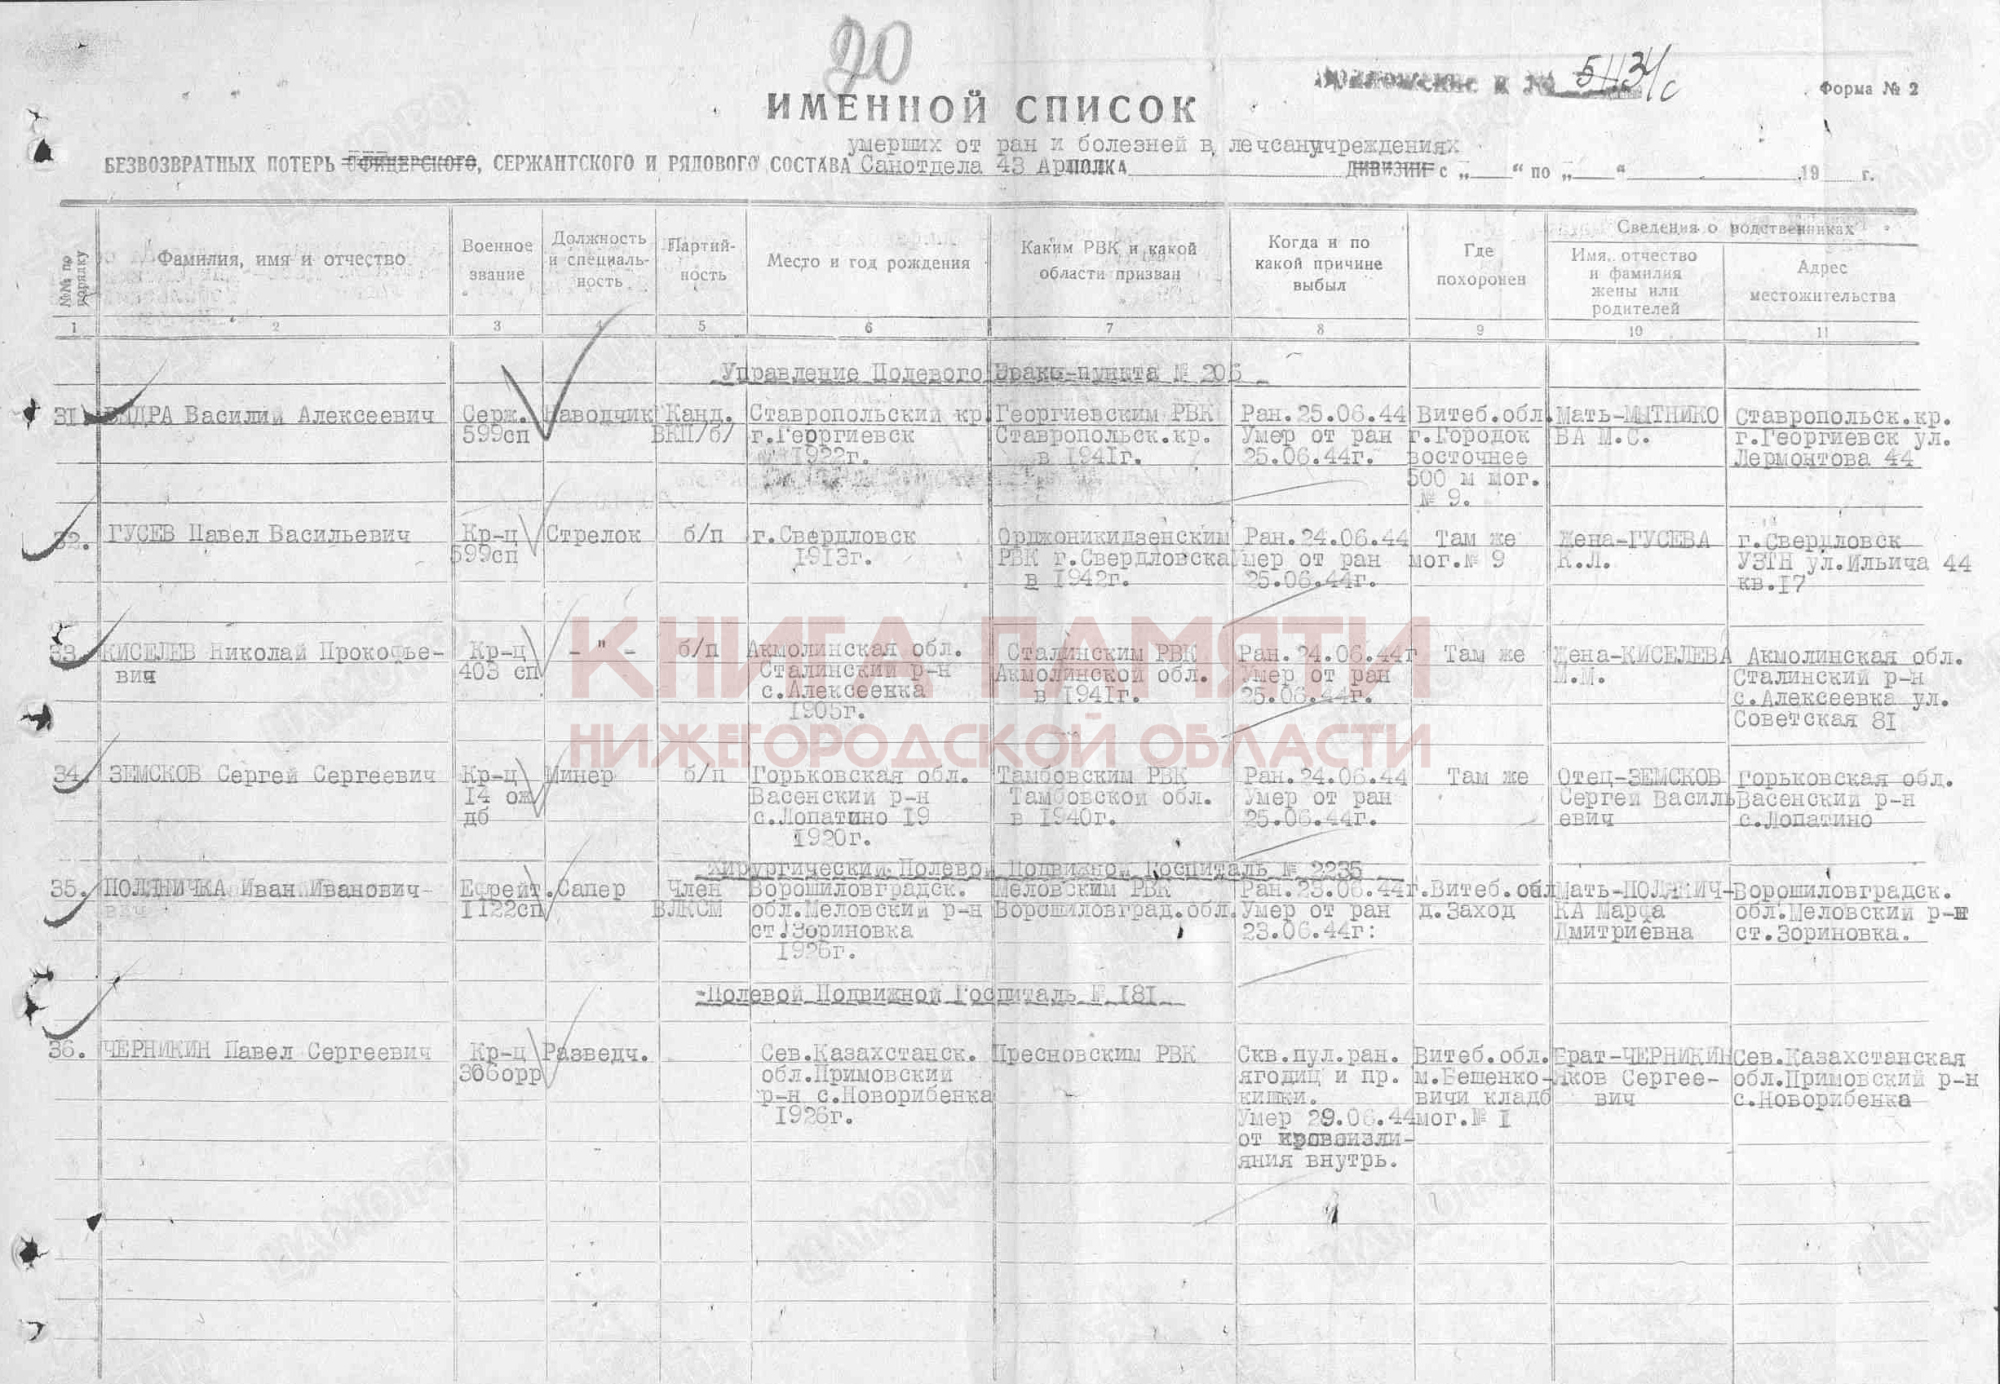 20
Приложение к № 51134/с
Форма № 2
ИМЕННОЙ СПИСОК
умерших от ран и болезней в лечсанучреждениях
БЕЗВОЗВРАТНЫХ ПОТЕРЬ ОФИЦЕРСКОГО, СЕРЖАНТСКОГО И РЯДОВОГО СОСТАВА Санотдела 43 Арм ПОЛКА ДИВИЗИИ с „ “ по „ “ 19 г.
№№ по порядку
Фамилия, имя и отчество
Военное звание
Должность и специаль-
ность
Партий-
ность
Место и год рождения
Каким РВК и какой
области призван
Когда и по
какой причине
выбыл
Где
похоронен
Сведения о родственниках
Имя, отчество
и фамилия
жены или
родителей
Адрес
местожительства
1 2 3 4 5 6 7 8 9 10 11
Управление Полевого Эвако-пункта № 206
31 ВЫДРА Василий Алексеевич Серж. Наводчик Канд. Ставропольский кр. Георгиевским РВК Ран.25.06.44 Витеб.обл. Мать-МЫТНИКО Ставропольск.кр.
599сп ВКП/б/ г.Георгиевск Ставропольск.кр. Умер от ран г.Городок ВА М.С. г.Георгиевск ул.
1922г. в 1941г. 25.06.44г. восточнее Лермонтова 44
500 м мог.
№ 9.
32. ГУСЕВ Павел Васильевич Кр-ц Стрелок б/п г.Свердловск Орджоникидзенским Ран.24.06.44 Там же Жена-ГУСЕВА г.Свердловск
599сп 1913г. РВК г.Свердловска Умер от ран мог.№ 9 К.Л. УЗТН ул.Ильича 44
в 1942г. 25.06.44г. кв.17
33. КИСЕЛЕВ Николай Прокофье- Кр-ц - " - б/п Акмолинская обл. Сталинским РВК Ран.24.06.44г Там же Жена-КИСЕЛЕВА Акмолинская обл.
вич 403 сп Сталинский р-н Акмолинской обл. Умер от ран М.М. Сталинский р-н
с.Алексеенка в 1941г. 25.06.44г. с.Алексеевка ул.
1905г. Советская 81
34. ЗЕМСКОВ Сергей Сергеевич Кр-ц Минер б/п Горьковская обл. Тамбовским РВК Ран.24.06.44 Там же Отец-ЗЕМСКОВ Горьковская обл.
14 ож Васенский р-н Тамбовской обл. Умер от ран Сергей Василь Васенский р-н
дб с.Лопатино 19 в 1940г. 25.06.44г. евич с.Лопатино
1920г.
Хирургический Полевой Подвижной Госпиталь № 2235
35. ПОЛЯНИЧКА Иван Иванович Ефрейт. Сапер Член Ворошиловградск. Меловским РВК Ран.23.06.44г. Витеб.обл Мать-ПОЛЯНИЧ- Ворошиловградск.
вич 1122сп ВЛКСМ обл.Меловский р-н Ворошиловград.обл. Умер от ран д.Заход КА Марфа обл.Меловский р-н
ст.Зориновка 23.06.44г: Дмитриевна ст.Зориновка.
1926г.
-Полевой Подвижной Госпиталь № 181
36. ЧЕРНИКИН Павел Сергеевич Кр-ц Разведч. Сев.Казахстанск. Пресновским РВК Скв.пул.ран. Витеб.обл. Брат-ЧЕРНИКИН Сев.Казахстанская
366орр обл.Примовский ягодиц и пр. м.Бешенко- Яков Сергее- обл.Примовский р-н
р-н с.Новорибенка кишки. вичи кладб вич с.Новорибенка
1926г. Умер 29.06.44 мог.№ 1
от кровоизли-
яния внутрь.
КНИГА ПАМЯТИ
НИЖЕГОРОДСКОЙ ОБЛАСТИ